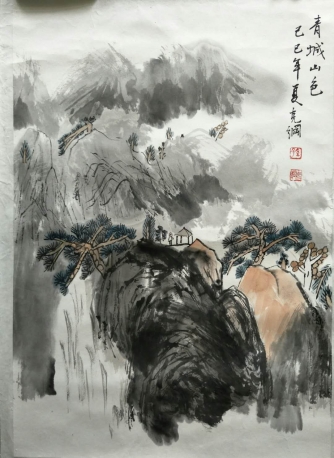 青城山色
己巳年夏克纲